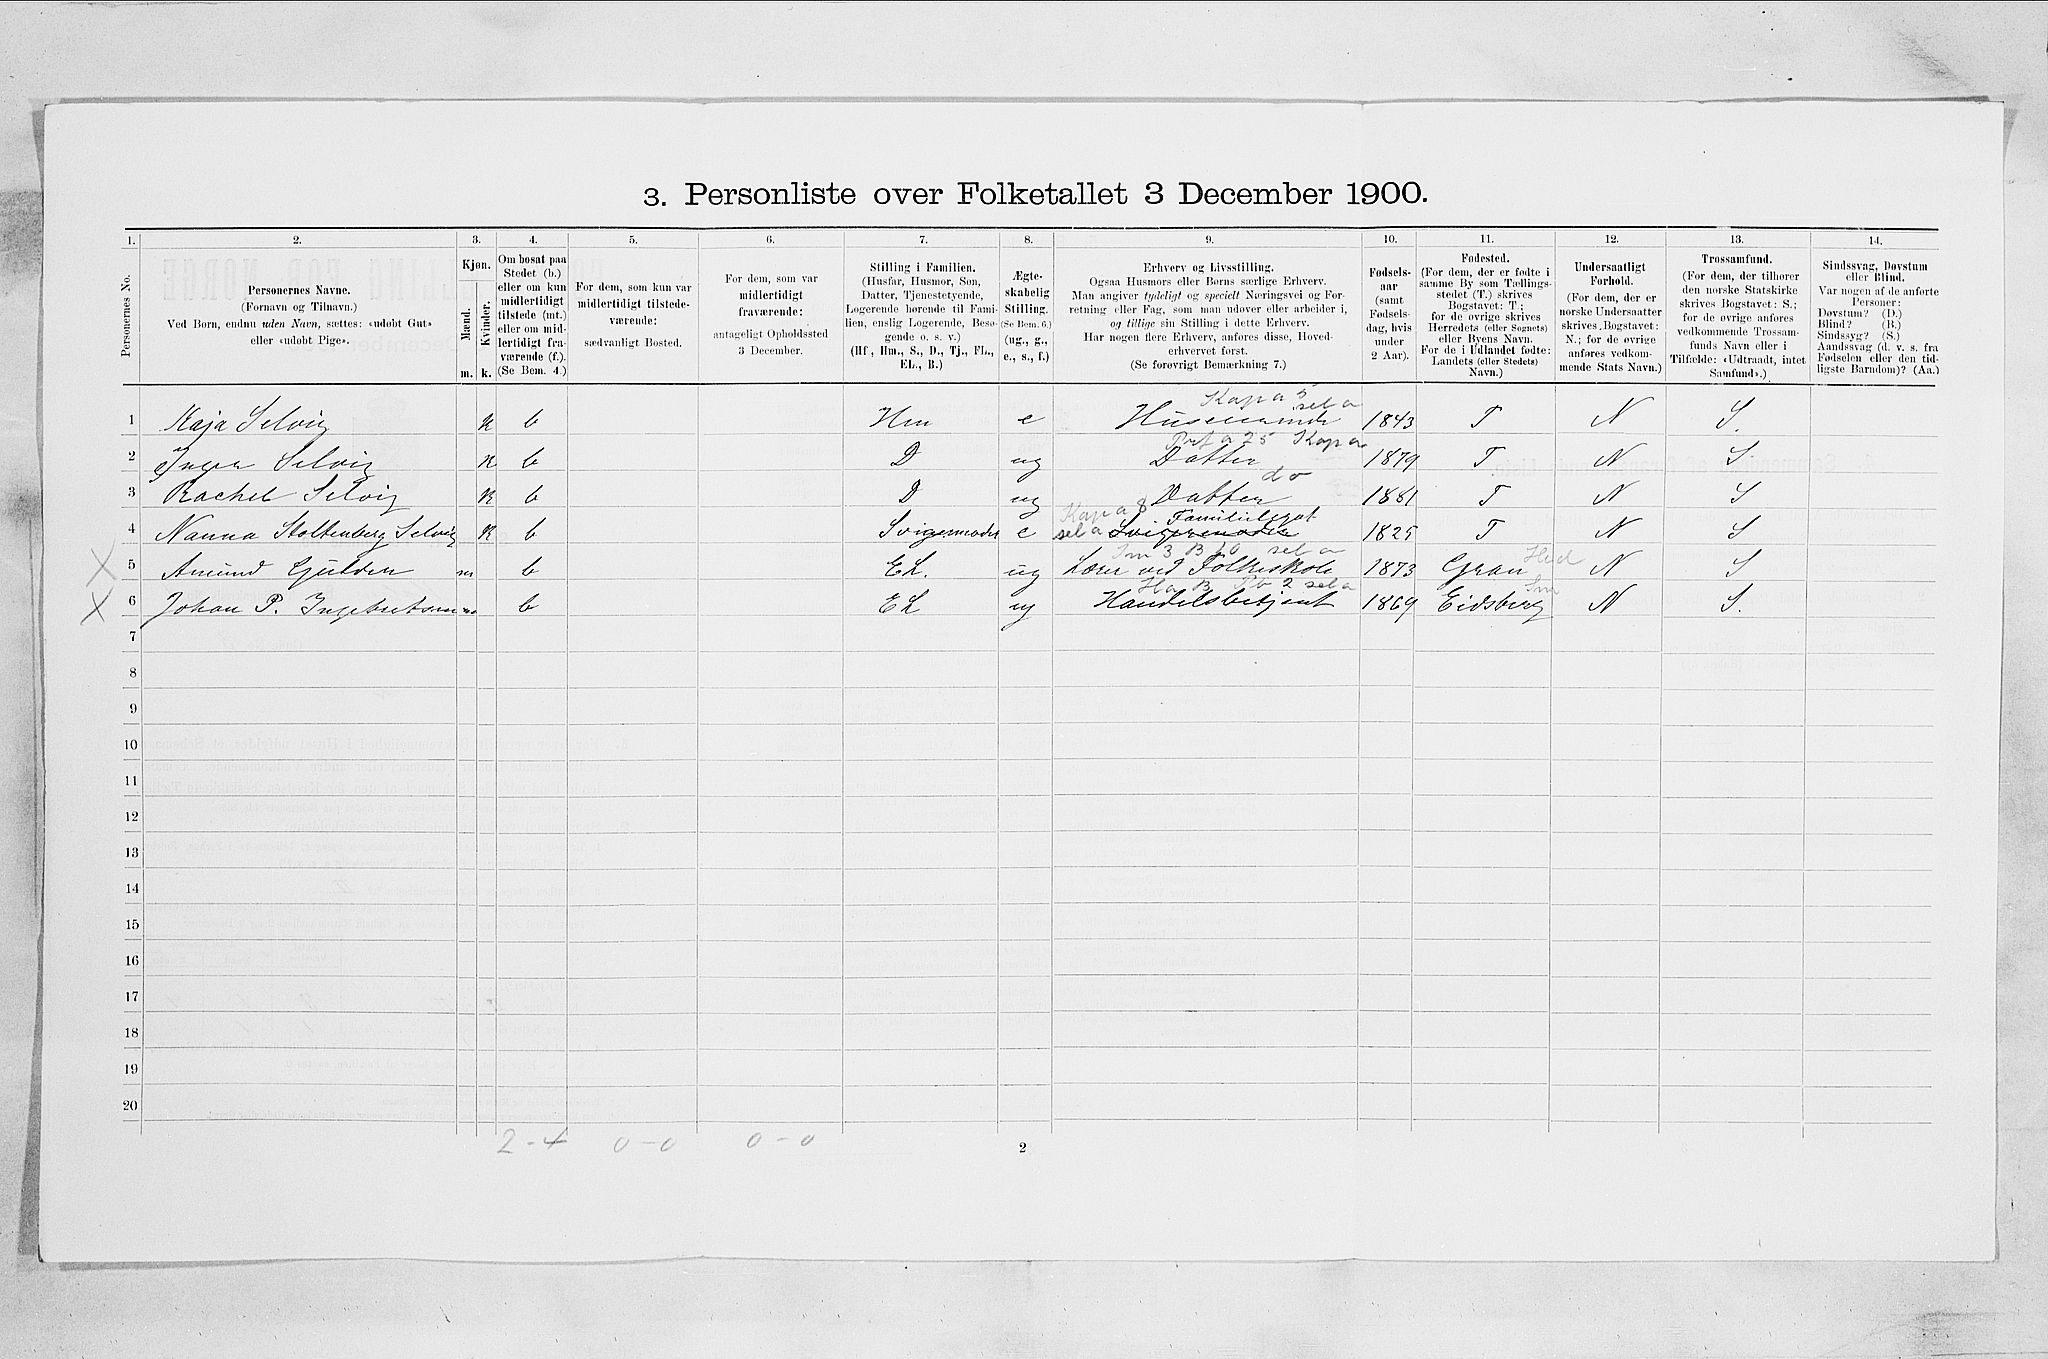 3. Personliste over Folketallet 3 December 1900.
1. 2. 3. 4. 5. 6. 7. 8. 9. 10. 11. 12. 13. 14.
Personernes No.
Personernes Navne.
(Fornavn og Tilnavn.)
Ved Børn, endnu uden Navn, sættes: «udøbt Gut»
eller «udøbt Pige».
Kjøn.
Mænd.
Kvinder.
m. k.
Om bosat paa
Stedet (b.)
eller om kun
midlertidigt
tilstede (mt.)
eller om mid-
lertidigt fra-
værende (f.).
(Se Bem. 4.)
For dem, som kun var
midlertidigt tilstede-
værende:
sædvanligt Bosted.
For dem, som var
midlertidigt
fraværende:
antageligt Opholdssted
3 December.
Stilling i Familien.
(Husfar, Husmor, Søn,
Datter, Tjenestetyende,
Logerende hørende til Fami-
lien, enslig Logerende, Besø-
gende o. s. v.)
(Hf., Hm., S., D., Tj., FL.,
EL., B.)
Ægte-
skabelig
Stilling.
(Se Bem. 6.)
(ug., g.,
e., s., f.)
Erhverv og Livsstilling.
Ogsaa Husmors eller Børns særlige Erhverv.
Man angiver tydeligt og specielt Næringsvei og For-
retning eller Fag, som man udøver eller arbeider i,
og tillige sin Stilling i dette Erhverv.
Har nogen flere Erhverv, anføres disse, Hoved-
erhvervet først.
(Se forøvrigt Bemærkning 7.)
Fødsels-
aar
(samt
Fødsels-
dag, hvis
under
2 Aar).
Fødested.
(For dem, der er fødte i
samme By som Tællings-
stedet (T.) skrives
Bogstavet: T;
for de øvrige skrives
Herredets (eller Sognets)
eller Byens Navn.
For de i Udlandet fødte:
Landets (eller Stedets)
Navn.)
Undersaatligt
Forhold.
(For dem, der er
norske Undersaatter
skrives Bogstavet:
N.; for de øvrige
anføres vedkom-
mende Stats Navn.)
Trossamfund.
(For dem, der tilhører
den norske Statskirke
skrives Bogstavet: S.;
for de øvrige anføres
vedkommende Trossam-
funds Navn eller i
Tilfælde: «Udtraadt, intet
Samfund».)
Sindssvag, Døvstum
eller Blind.
Var nogen af de anførte
Personer:
Døvstum? (D.)
Blind? (B.)
Sindssyg? (S.)
Aandssvag (d. v. s. fra
Fødselen eller den tid-
ligste Barndom)? (Aa.)
Kap a 5
sel a
1 Kaja Selvig k b Hm e Husmoder 1843 T N S.
2 Inga Selvig k b D ug Datter 1879 T N S
do
3 Rachel Selvig k b D ug Datter 1881 T N S
Kap a 8 Familielegat
4 Nanna Stoltenberg Selvig k b Svigermoder e sel a Svigermoder 1825 T N S
sel a
5 Amund Gulden m b EL. ug Lærer ved Folkeskole 1873 Gran Hed N S
Ha B sel a
6 Johan P. Ingebretsen m b EL ug Handelsbetjent 1869 Eidsberg Sm N S.
7
8
9
10
11
12
13
14
15
16
17
18
19
20
2-4 0-0 0-0
2